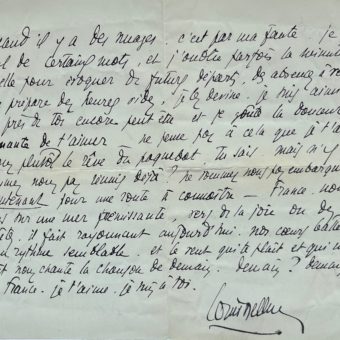 and il y a des nuages. c'est par ma faute. je
de certains mots, et j'oublie parfois la minute
elle pour évoquer de futurs départs, des absences à
prépare des heures vides, je le devine. je suis
près de toi encore peut être et je goûte la douceur
nante de t'aimer ne pense pas à cela que je t'ai
plutôt le rêve du paquebot, tu sais mais n'y
nous pas connu déjà? ne sommes nous pas embarqués
tenant pour une route à connaître — France, nous
sur une mer frémissante, vers de la joie ou du
il fait rayonnant aujourd'hui. nos cœurs battent
rythme semblable. et le vent qui te plaît et qui
nous chante la chanson de demain. demain? demain
France. je t'aime. je suis à toi.